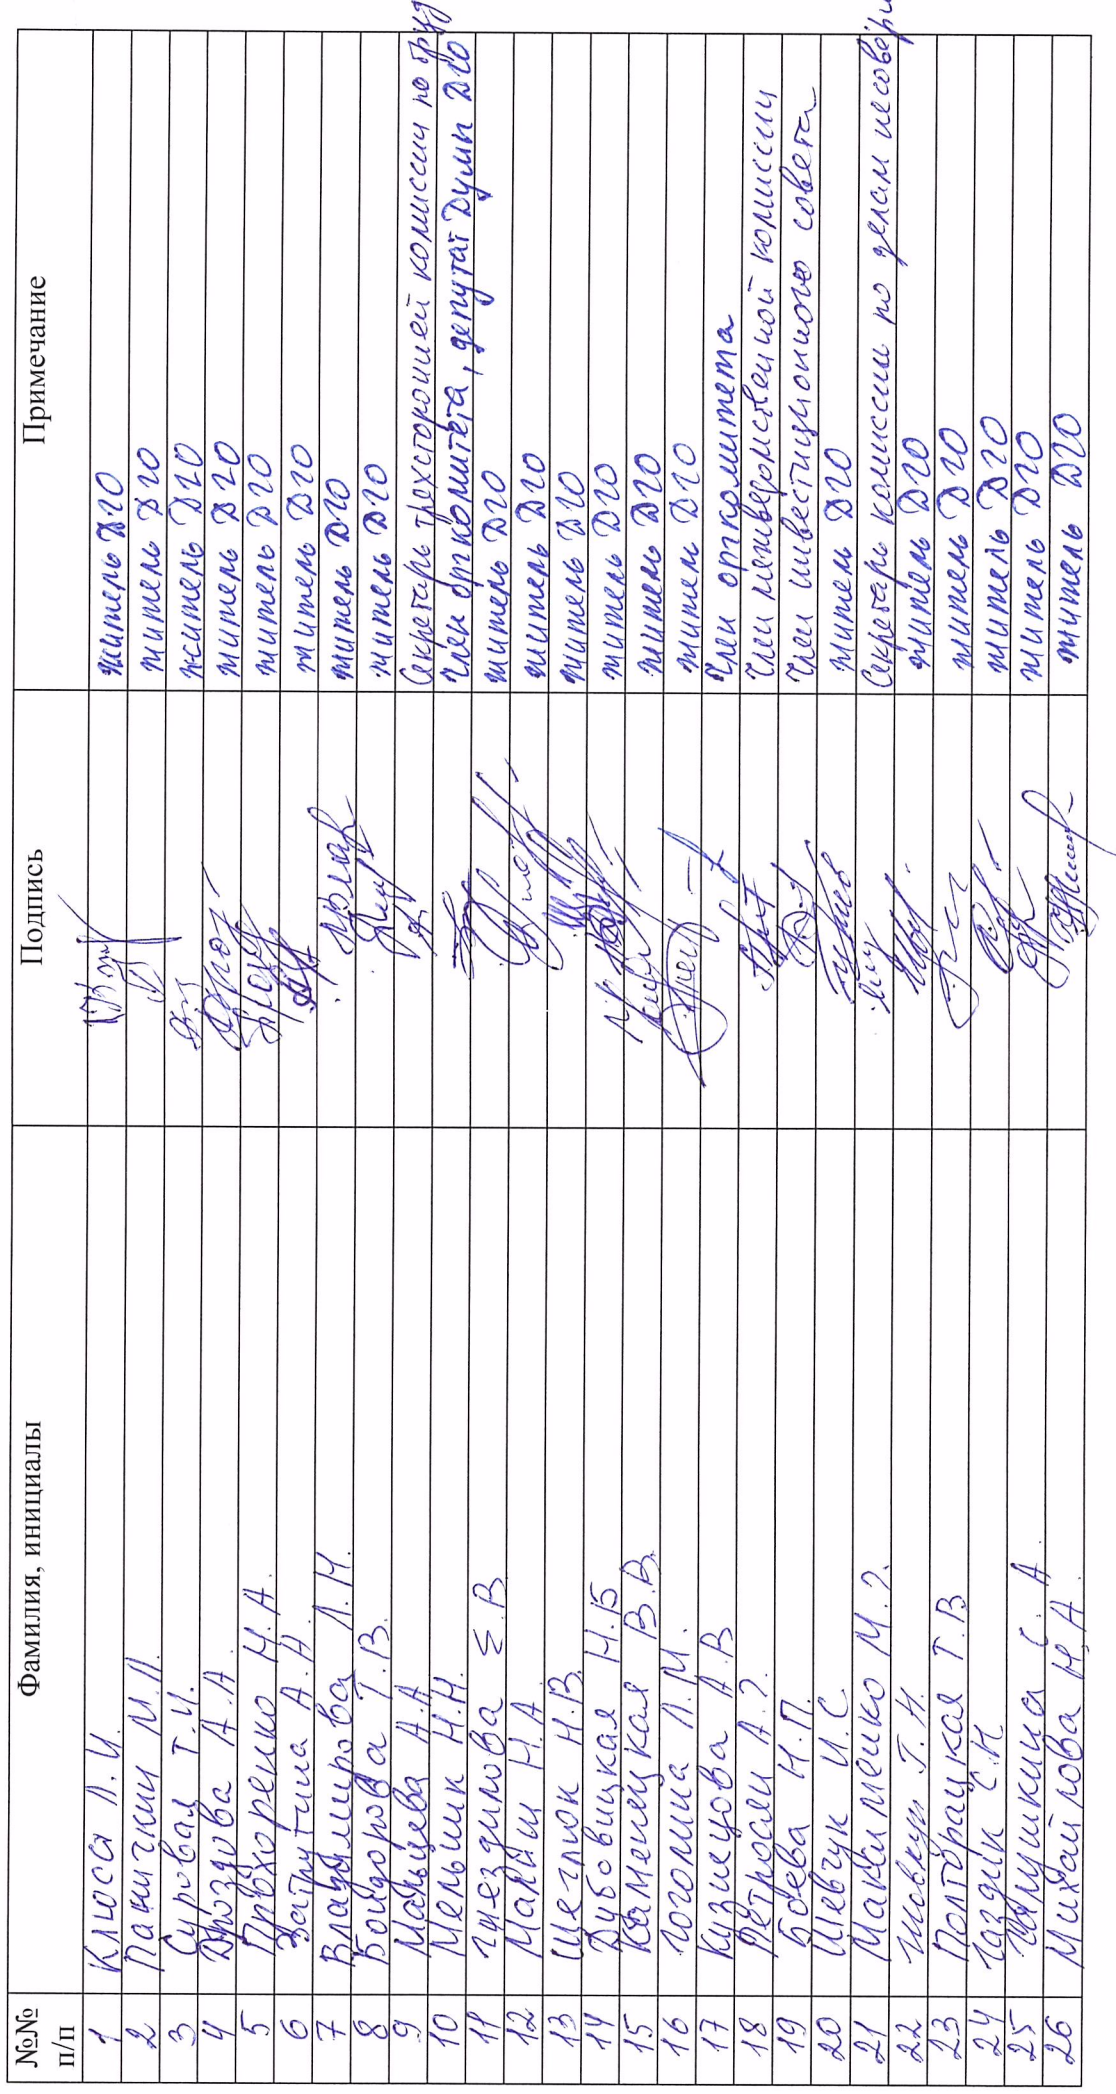 №№ п/п Фамилия, инициалы Подпись Примечание
1 Клюса Л. И. житель ДГО
2 Паничкин М.П. житель ДГО
3 Суровая Т.И. житель ДГО
4 Дроздова А.А. житель ДГО
5 Прохоренко Н.А. житель ДГО
6 А.Н. житель ДГО
7 Владимирова Л.Н. житель ДГО
8 Бондорова Т.В. житель ДГО
9 Мальцева А.А. Секретарь трехсторонней комиссии по труд
10 Мельник Н.Н. Член оргкомитета, депутат Думы ДГО
11 Гнездилова Е.В. житель ДГО
12 Н.А. житель ДГО
13 Щеглюк Н.В. житель ДГО
14 Дубовицкая Н.Б житель ДГО
15 Каменецкая В.В. житель ДГО
16 Л.М. житель ДГО
17 Кузнецова А.В Член оргкомитета
18 Петросян А.Г. Член межведомственной комиссии
19 Боева Н.П. Член инвестиционного совета
20 Шевчук И.С. житель ДГО
21 Макаименко М.Г. Секретарь комиссии по делам несовери
22 Шовкун Т.Н. житель ДГО
23 Полторацкая Т.В житель ДГО
24 Газдик С.Н житель ДГО
25 С.А. житель ДГО
26 Михайлова Н.А. житель ДГО